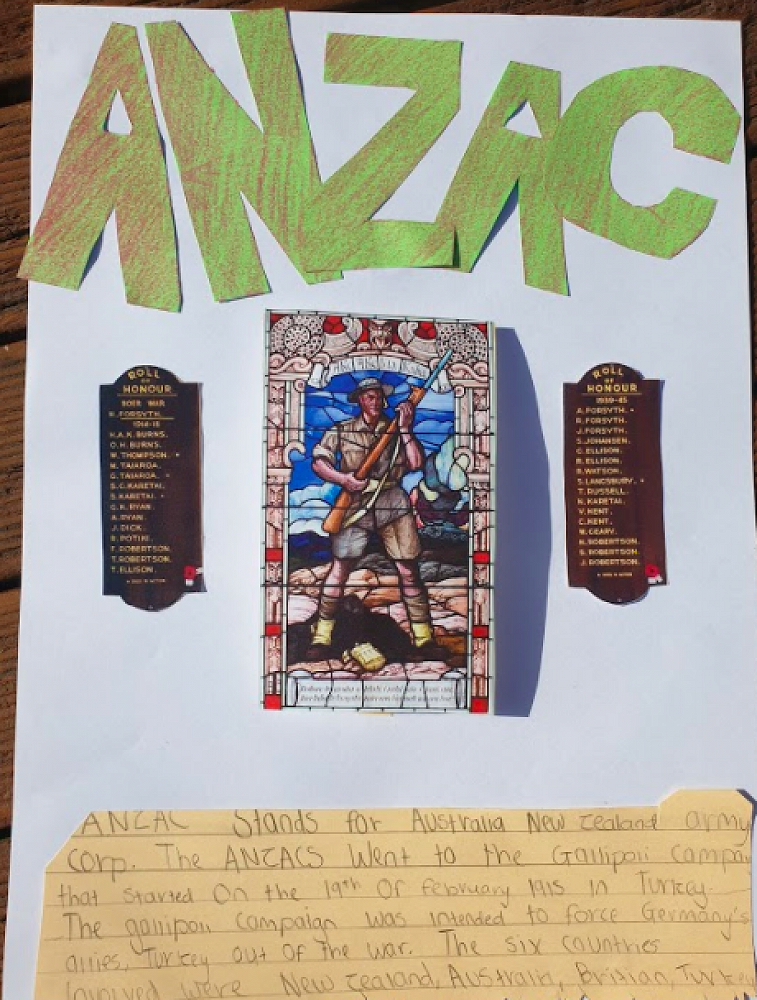 ANZAC
ROLL
OF
HONOUR
BOER WAR
N. FORSYTH.
1914-18
H.A.K. BURNS.
O.H. BURNS.
W. THOMPSON.
M. TAIAROA.
G. TAIAROA.
S.C. KARETAI.
S. KARETAI.
G.R. RYAN.
A. RYAN.
J. DICK.
R. POTIKI.
F. ROBERTSON.
T. ROBERTSON.
T. ELLISON.
ROLL
OF
HONOUR
1939-45
A. FORSYTH.
R. FORSYTH.
J. FORSYTH.
S. JOHANSEN.
C. ELLISON.
R. ELLISON.
R. WATSON.
S. LANGSBURY.
T. RUSSELL.
N. KARETAI.
V. KENT.
C. KENT.
W. GEARY.
N. ROBERTSON.
S. ROBERTSON.
J. ROBERTSON.
ANZAC Stands for Australia New zealand army
corp. The ANZACS Went to the Gallipoli campa
that started On the 19th Of february 1915 in Turkey.
The gallipoli campaign was intended to force Germany's
allies, Turkey out of the war. The six countries
Involved were New zealand, Australia, Britian, Turkey